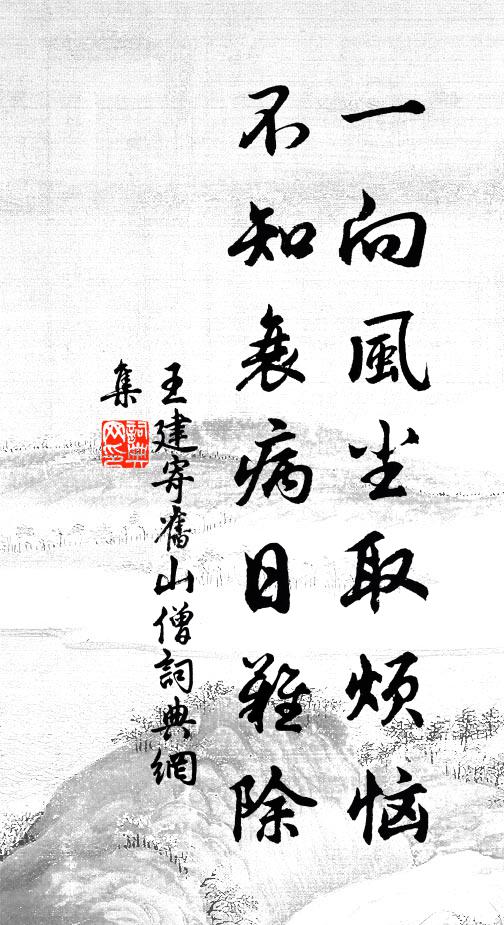 一向風尘取烦恼
不知衰病日難除
王建寄舊山僧詞典網
集